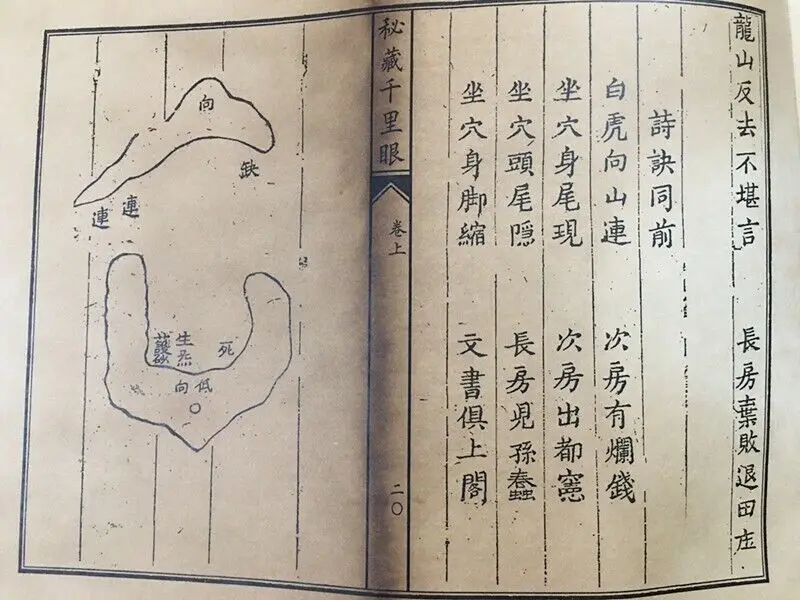 龍山反去不堪言 長房敗退田庄
詩訣同前
白虎向山連 次房有爛錢
坐穴身尾現 次房出都憲
坐穴頭尾隱 長房兒孫蠢
坐穴身脚縮 文書俱上閣
秘藏千里眼
卷上
二〇
向
缺
連
連
死
生炁
護砂
低
向